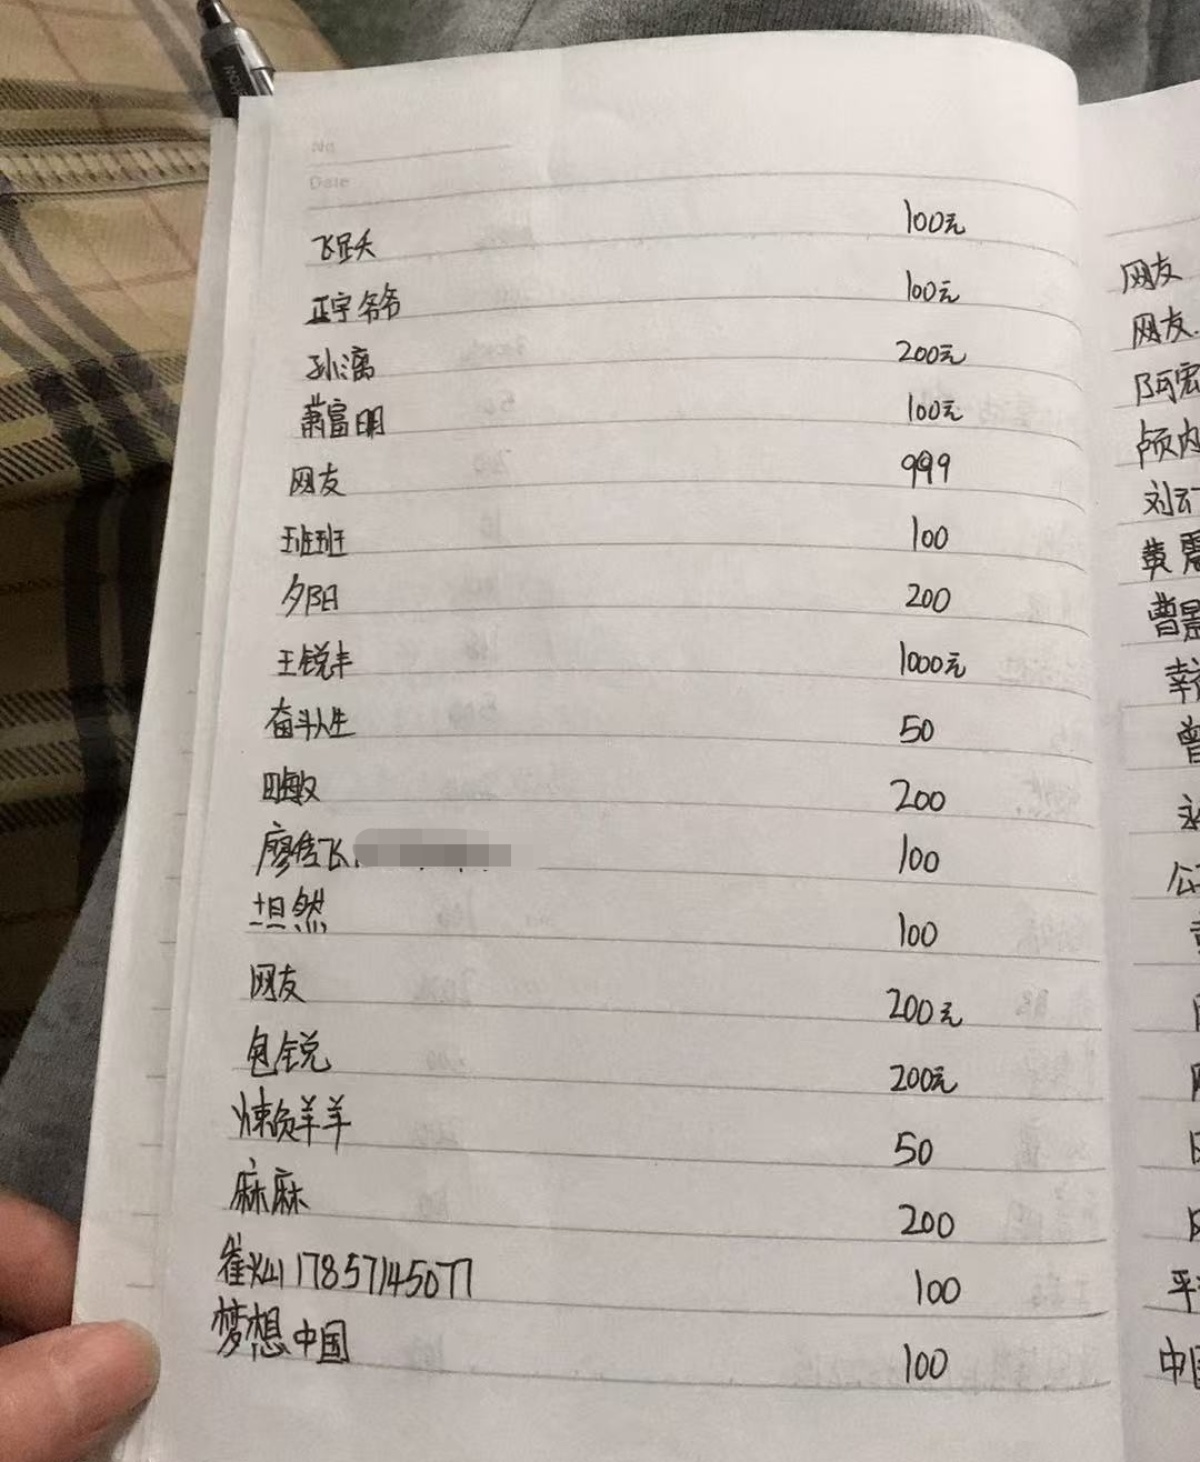 No
Date
飞毛头 100元
正宇爷爷 100元
孙漓 200元
萧富明 100元
网友 999
班班 100
夕阳 200
王锐丰 1000元
奋斗人生 50
田敏 200
廖信飞 100
坦然 100
网友 200元
包锐 200元
懒羊羊 50
麻麻 200
崔灿17857145077 100
梦想中国 100
网友
网友
阿宏
颅内
刘云
黄震
曹景
幸
曾
永
公
平
中国